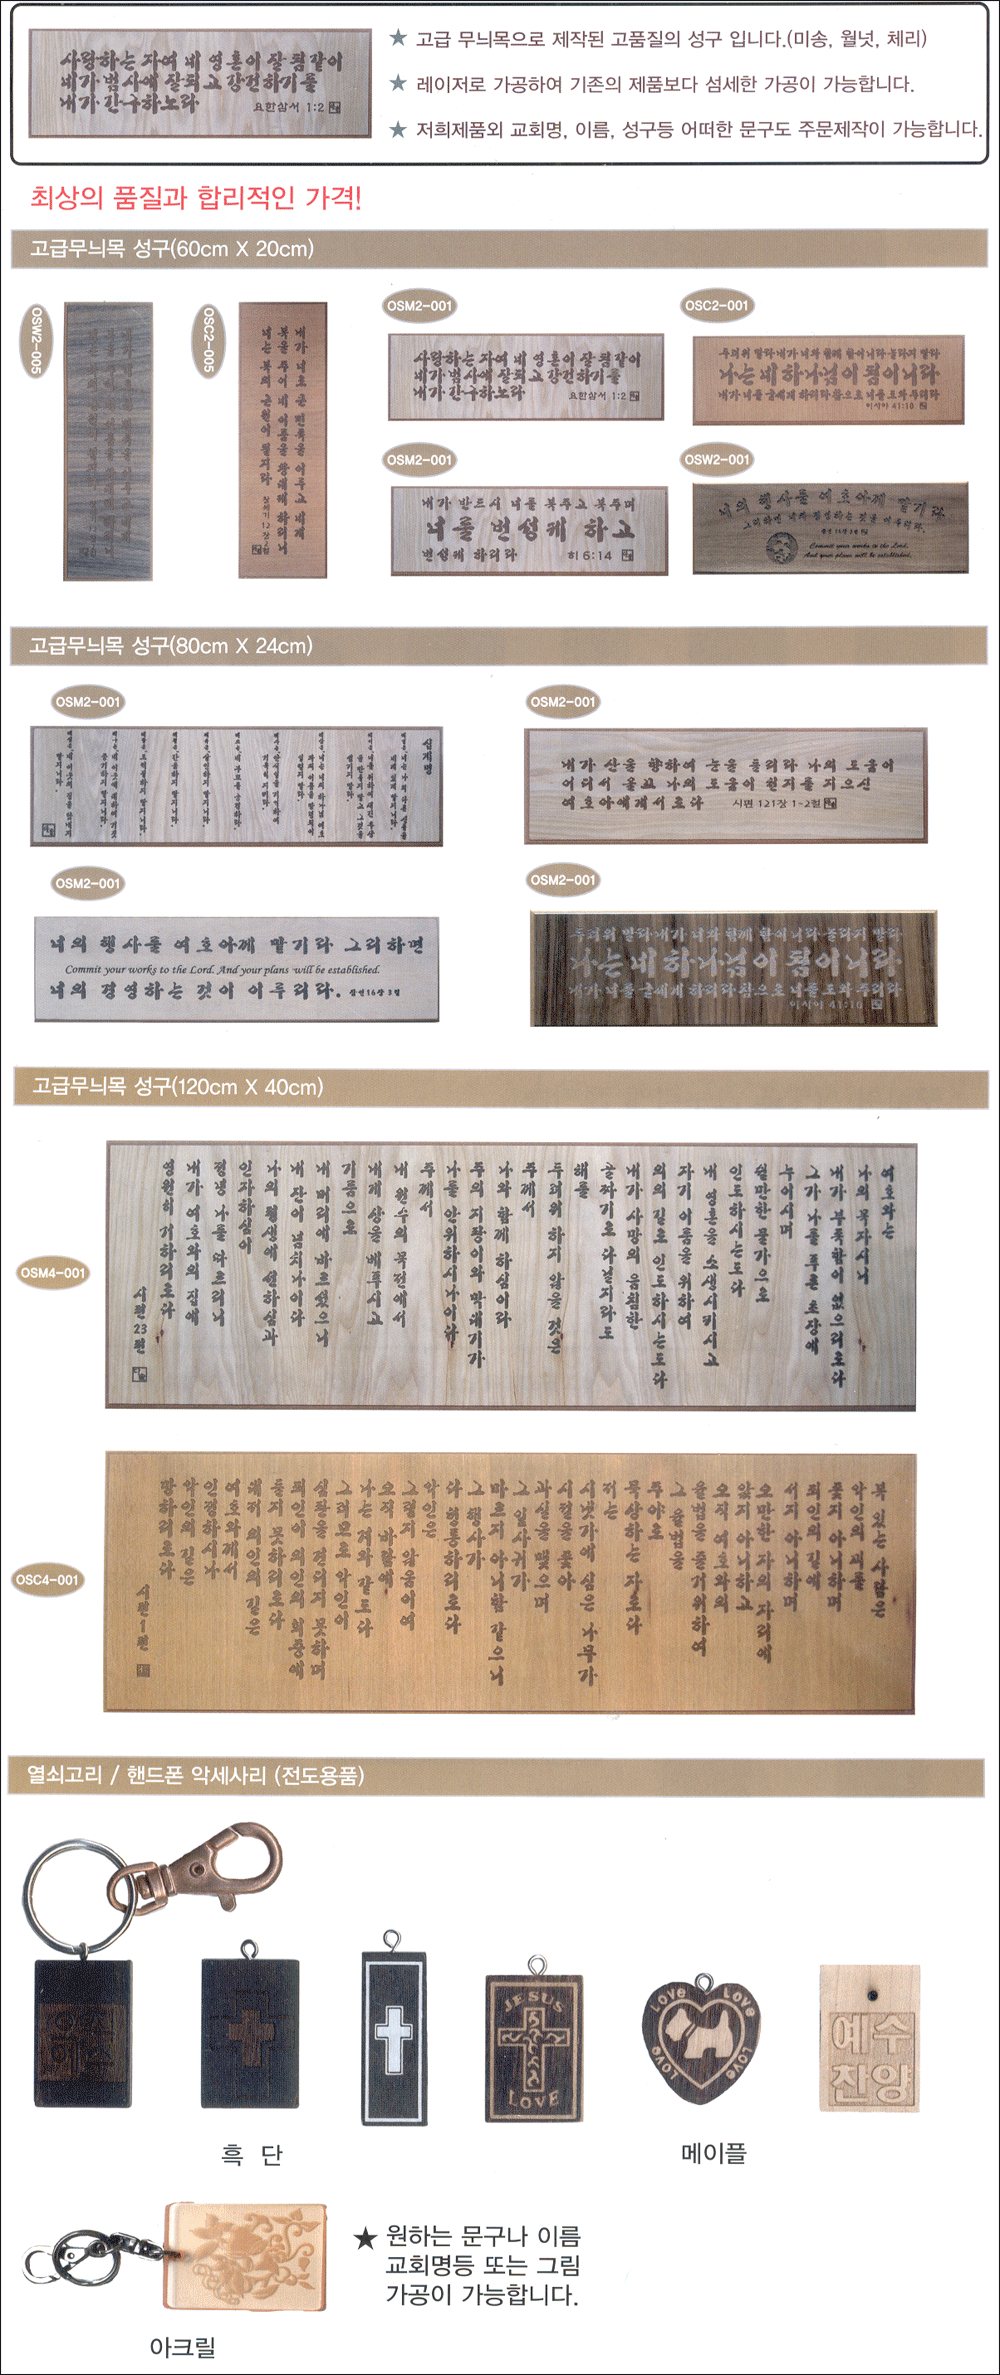 사랑하는 자여 네 영혼이 잘 됨같이
네가 범사에 잘되고 강건하기를
내가 간구하노라 요한삼서 1:2
★ 고급 무늬목으로 제작된 고품질의 성구 입니다.(미송, 월넛, 체리)
★ 레이저로 가공하여 기존의 제품보다 섬세한 가공이 가능합니다.
★ 저희제품외 교회명, 이름, 성구등 어떠한 문구도 주문제작이 가능합니다.
최상의 품질과 합리적인 가격!
고급무늬목 성구(60cm X 20cm)
OSW2-005
OSC2-005
내가 너로 큰 민족을 이루고 네게
복을 주어 네 이름을 창대케 하리니
너는 복의 근원이 될지라 창세기 12장2절
OSM2-001
사랑하는 자여 네 영혼이 잘 됨같이
네가 범사에 잘되고 강건하기를
내가 간구하노라 요한삼서 1:2
OSC2-001
두려워 말라 내가 너와 함께 함이니라 놀라지 말라
나는 네 하나님이 됨이니라
내가 너를 굳세게 하리라 참으로 너를 도와 주리라
이사야 41:10
OSM2-001
내가 반드시 너를 복주고 복주며
너를 번성케 하고
번성케 하리라 히 6:14
OSW2-001
너의 행사를 여호아께 맡기라
그리하면 너의 경영하는 것을 이루리라.
Commit your works to the Lord,
And your plans will be established.
고급무늬목 성구(80cm X 24cm)
OSM2-001
십계명
OSM2-001
내가 산을 향하여 눈을 들리라 나의 도움이
어디서 올꼬 나의 도움이 천지를 지으신
여호아에게서 로다 시편 121장 1-2절
OSM2-001
너의 행사를 여호아께 맡기라 그리하면
Commit your works to the Lord. And your plans will be established.
너의 경영하는 것이 이루리라. 잠언16장 3절
OSM2-001
두려워 말라 내가 너와 함께 함이니라 놀라지 말라
나는 네 하나님이 됨이니라
내가 너를 굳세게 하리라 참으로 너를 도와 주리라
이사야 41:10
고급무늬목 성구(120cm X 40cm)
OSM4-001
여호와는
나의 목자시니
내가 부족함이 없으리로다
그가 나를 푸른 초장에
누이시며
쉴만한 물가으로
인도하시는도다
내 영혼을 소생시키시고
자기 이름을 위하여
의의 길로 인도하시는도다
내가 사망의 음침한
골짜기로 다닐지라도
해를
두려워 하지 않을 것은
주께서
나와 함께 하심이라
주의 지팡이와 막대기가
나를 안위하시나이다
주께서
내 원수의 목전에서
내게 상을 베푸시고
기름으로
내 머리에 바르셨으니
내 잔이 넘치나이다
나의 평생에 선하심과
인자하심이
정녕 나를 따르리니
내가 여호와의 집에
영원히 거하리로다
시편23편
OSC4-001
복 있는 사람은
악인의 꾀를
좇지 아니하며
죄인의 길에
서지 아니하며
오만한 자의 자리에
앉지 아니하고
오직 여호와의
율법을 즐거워하여
그 율법을
주야로
묵상하는 자로다
저는
시냇가에 심은 나무가
시절을 좇아
과실을 맺으며
그 잎사귀가
마르지 아니함 같으니
그 행사가
다 형통하리로다
악인은
그렇지 않음이여
오직 바람에
나는 겨와 같도다
그러므로 악인이
심판을 견디지 못하며
죄인이 의인의 회중에
들지 못하리로다
대저 의인의 길은
여호와께서
인정하시나
악인의 길은
망하리로다
시편1편
열쇠고리 / 핸드폰 악세사리 (전도용품)
JESUS
LOVE
Love Love
Love Love
예수
찬양
흑 단
메이플
★ 원하는 문구나 이름
교회명등 또는 그림
가공이 가능합니다.
아크릴